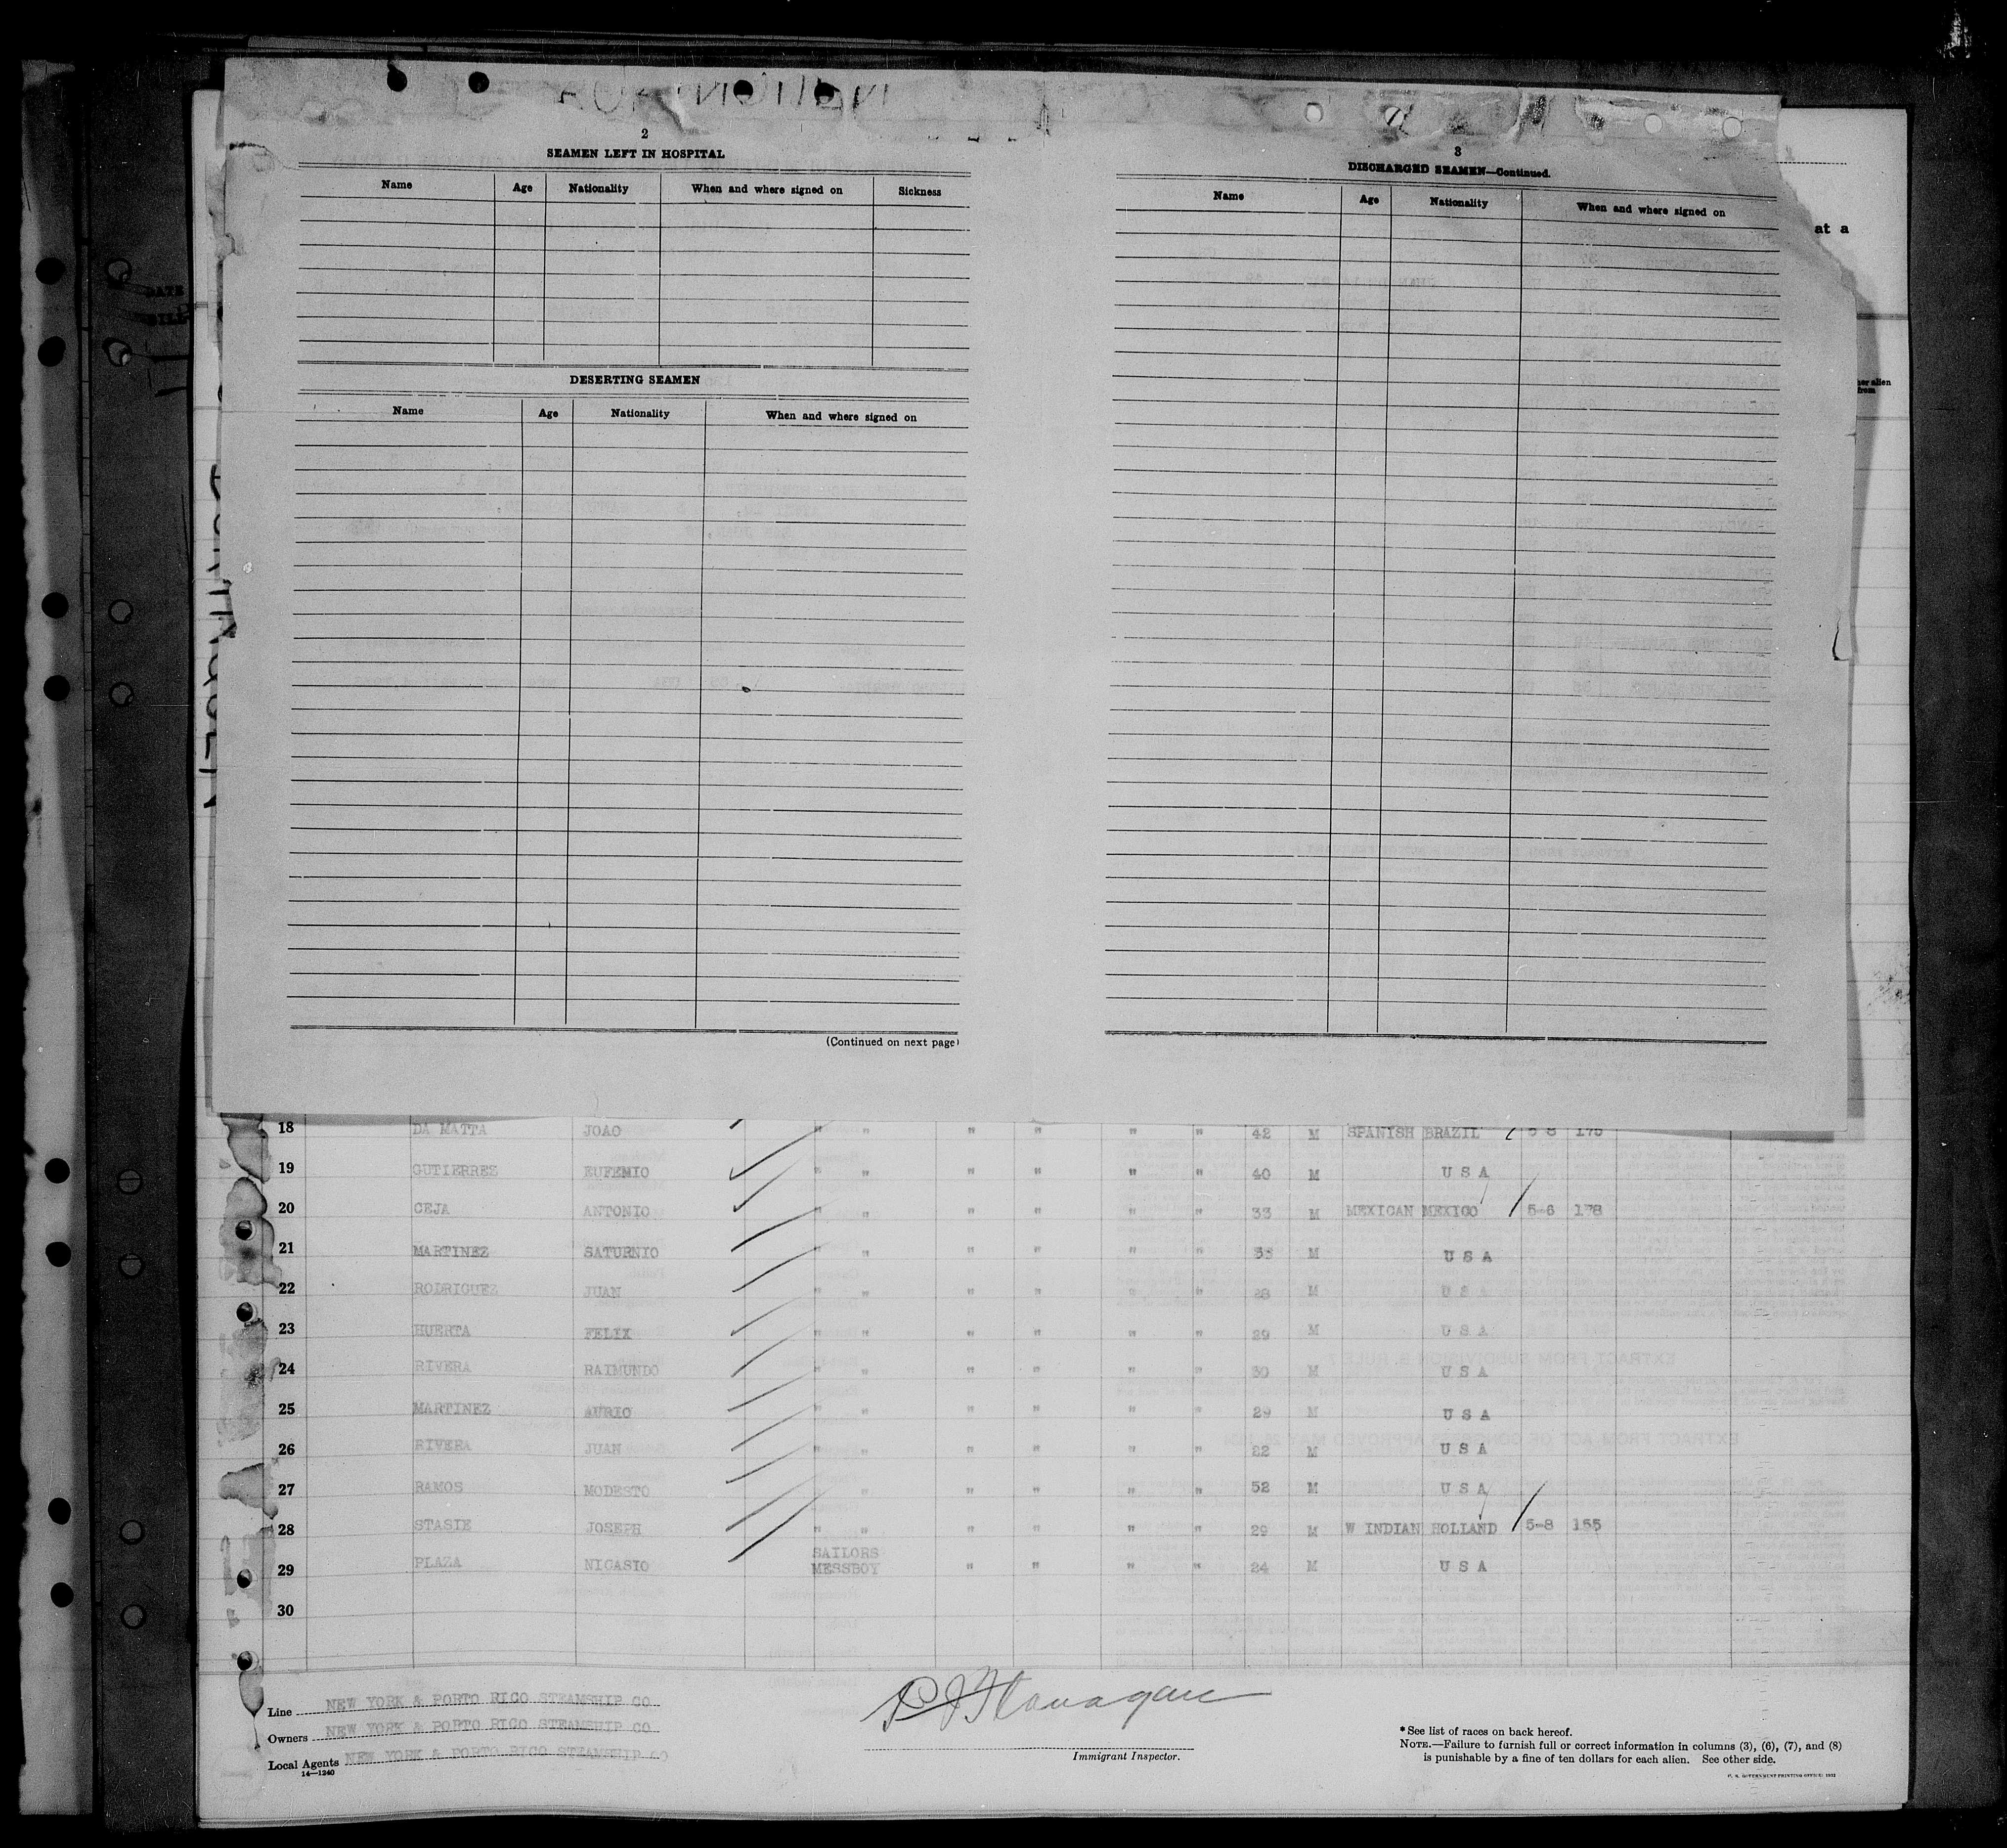 2
SEAMEN LEFT IN HOSPITAL
Name Age Nationality When and where signed on Sickness
DESERTING SEAMEN
Name Age Nationality When and where signed on
(Continued on next page)
3
DISCHARGED SEAMEN—Continued.
Name Age Nationality When and where signed on
at a
her alien
from
DATE
18 DA MATTA JOAO " " " " " " 42 M SPANISH BRAZIL 5 8 175
19 GUTIERREZ EUFEMIO " " " " " " 40 M U S A
20 CEJA ANTONIO " " " " " " 33 M MEXICAN MEXICO 5-6 178
21 MARTINEZ SATURNIO " " " " " " M U S A
22 RODRIGUEZ JUAN " " " " " " 28 M U S A
23 HUERTA FELIX " " " " " " 29 M U S A
24 RIVERA RAIMUNDO " " " " " " 30 M U S A
25 MARTINEZ AURIO " " " " " " 29 M U S A
26 RIVERA JUAN " " " " " " 22 M U S A
27 RAMOS MODESTO " " " " " " 52 M U S A
28 STASIE JOSEPH " " " " " " 29 M W INDIAN HOLLAND 5-8 155
29 PLAZA NICASIO SAILORS MESSBOY " " " " 24 M U S A
30
Line NEW YORK & PORTO RICO STEAMSHIP CO
Owners NEW YORK & PORTO RICO STEAMSHIP CO
Local Agents NEW YORK & PORTO RICO STEAMSHIP CO
14—1240
P J Flanagan
Immigrant Inspector.
*See list of races on back hereof.
NOTE.—Failure to furnish full or correct information in columns (3), (6), (7), and (8)
is punishable by a fine of ten dollars for each alien. See other side.
U. S. GOVERNMENT PRINTING OFFICE: 1932